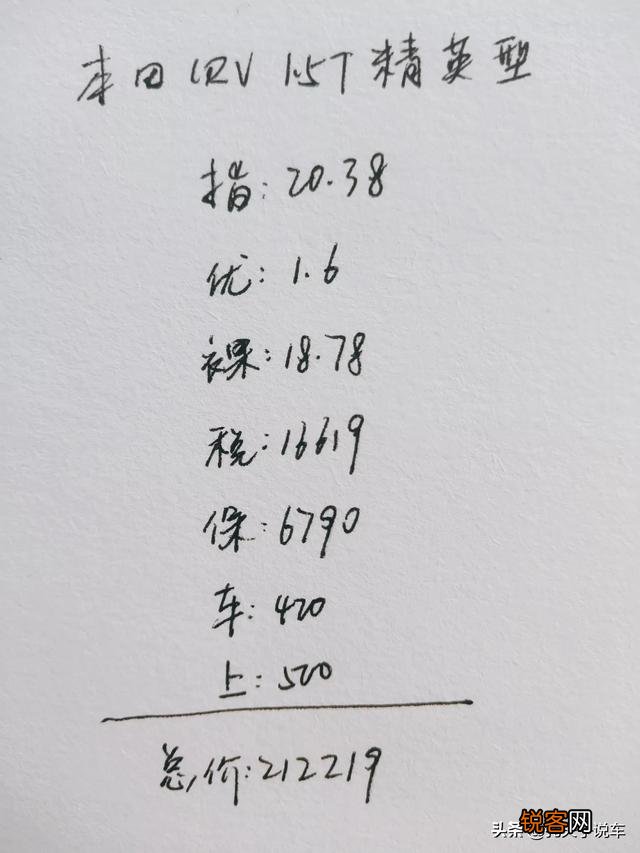 本田CRV 1.5T精英型
指:20.38
优:1.6
裸:18.78
税:16619
保:6790
车:420
上:500
总价:212219
锐客网
头条 说车